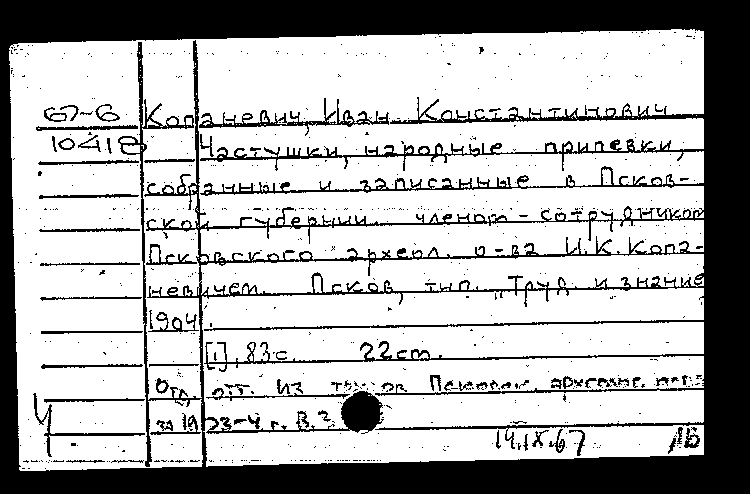 67-6 Копаневич, Иван Константинович
10418 Частушки, народные припевки,
собранные и записанные в Псков-
ской губернии членом-сотрудником
Псковского археол. о-ва И.К.Копа-
невичем. Псков, тип. „Труд и знание
1904.
[1], 83с. 22cm.
Отд. отт. из археолог.
за 19 г. В.
14.IX.67 АБ
Ч